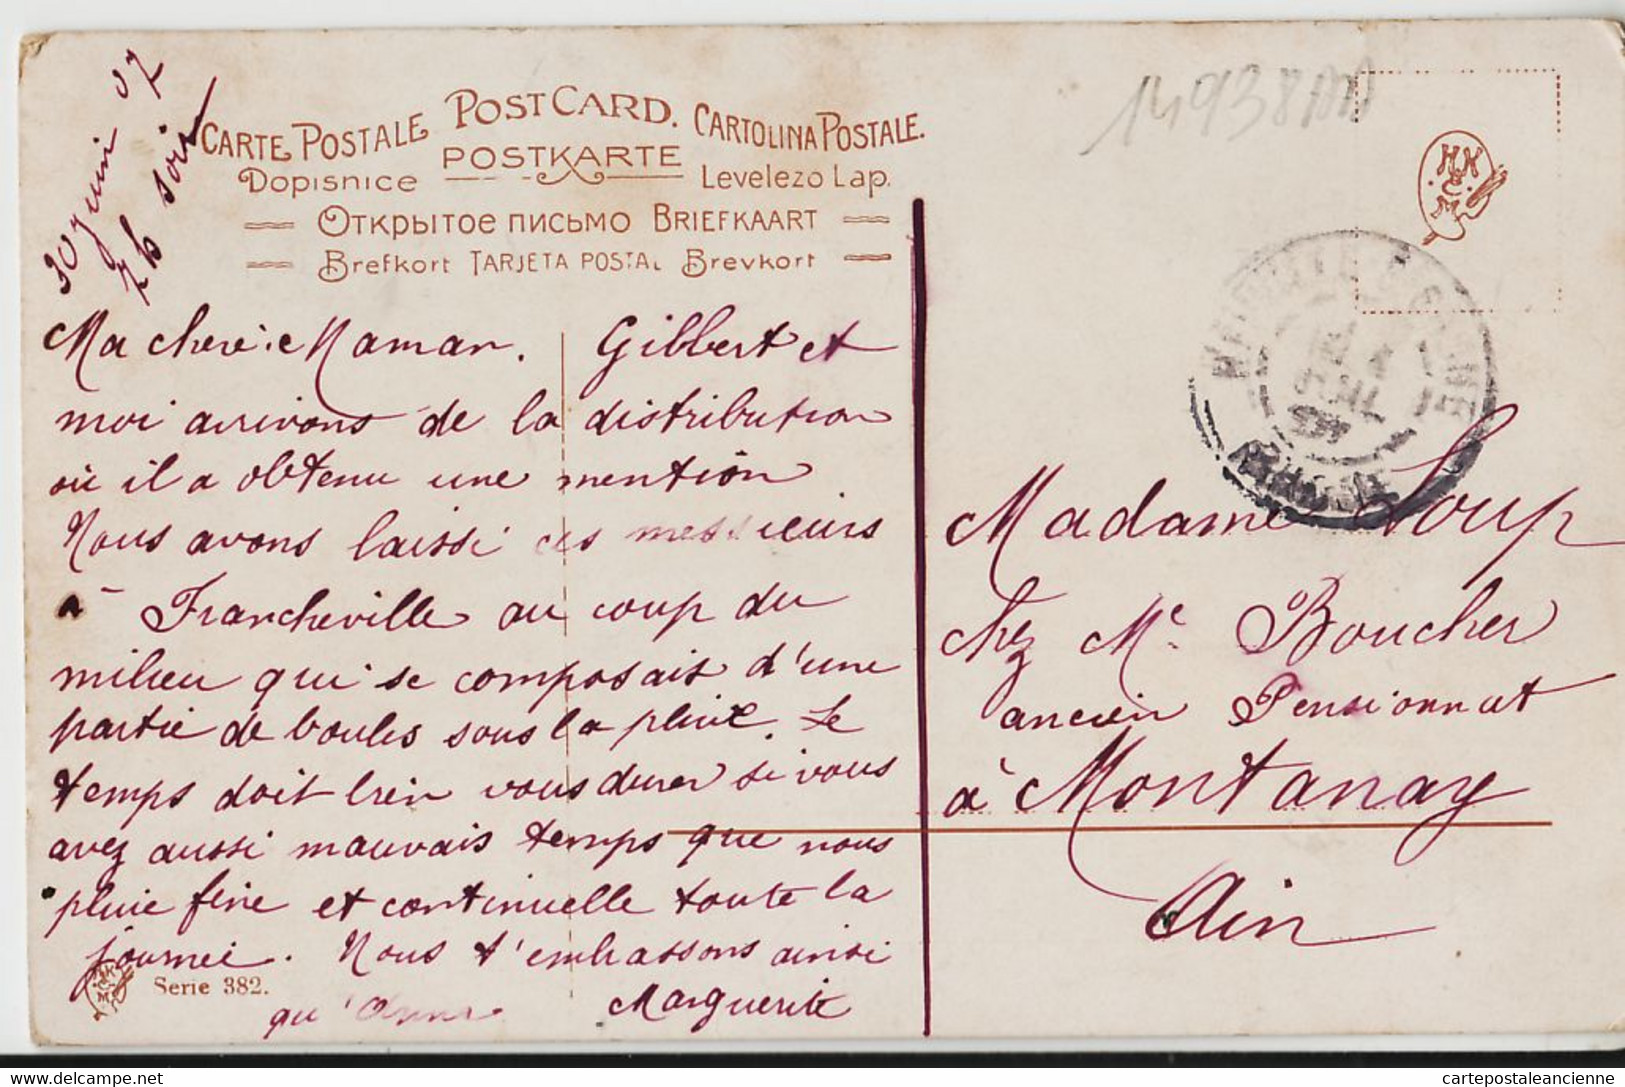 30 juin 07
7 h soir
14938
CARTE POSTALE POST CARD. CARTOLINA POSTALE.
Dopisnice POSTKARTE Levelezo Lap.
Открытое письмо BRIEFKAART
Brefkort TARJETA POSTAL Brevkort
Ma cherie Maman. Gilbert et
moi arrivons de la distribution
où il a obtenu une mention
Nous avons laissé ces messieurs
à Francheville au coup du
milieu qui se composait d'une
partie de boules sous la pluie. Le
temps doit bien vous durer si vous
avez aussi mauvais temps que nous
pluie fine et continuelle toute la
journée. Nous t'embrassons ainsi
qu'Anna Marguerite
Serie 382.
RHONE
Madame Loup
chez Me Boucher
ancien Pensionnat
à Montanay
Ain
cartepostaleancienne